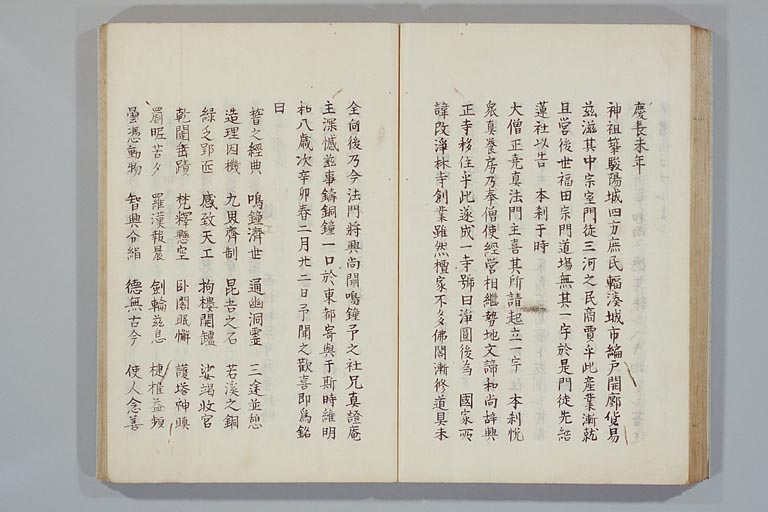 慶長未年
神祖築駿陽城四方庶民輻湊城市編戸閈廊貨易
茲滋其中宗室門徒三河之民商賈乎此產業漸就
且營後世福田宗門道場無其一宇於是門徒先結
蓮社以告 本刹于時
大僧正堯真法門主喜其所請起立一宇 本刹悅
衆真養房乃奉僧使經營相繼勢地文諦和尚諱興
正寺移住乎此遂成一寺號曰淨圓後為 國家所
諱改淨林寺創業雖然檀家不多佛閣漸修道具未
全向後乃今法門將興尚闕鳴鐘予之社兄真證庵
主深憾茲事鑄銅鐘一口於東都寄與于斯時維明
和八歲次辛卯春二月廿二日予聞之歡喜即為銘
曰
誓之經典 鳴鐘濟世 逼幽洞靈 三途並恕
造理因機 九界齊制 昆吾之石 若溪之銅
緑乏郢匠 感致天工 拘樓開鑪 娑竭收官
乾闥奮蹟 梵釋懸空 臥閣眠懈 護塔神暎
罽昵苦夕 羅漢報晨 劍輪茲息 揵椎益頻
曇憑勗物 智興分絹 德無古今 使人念善